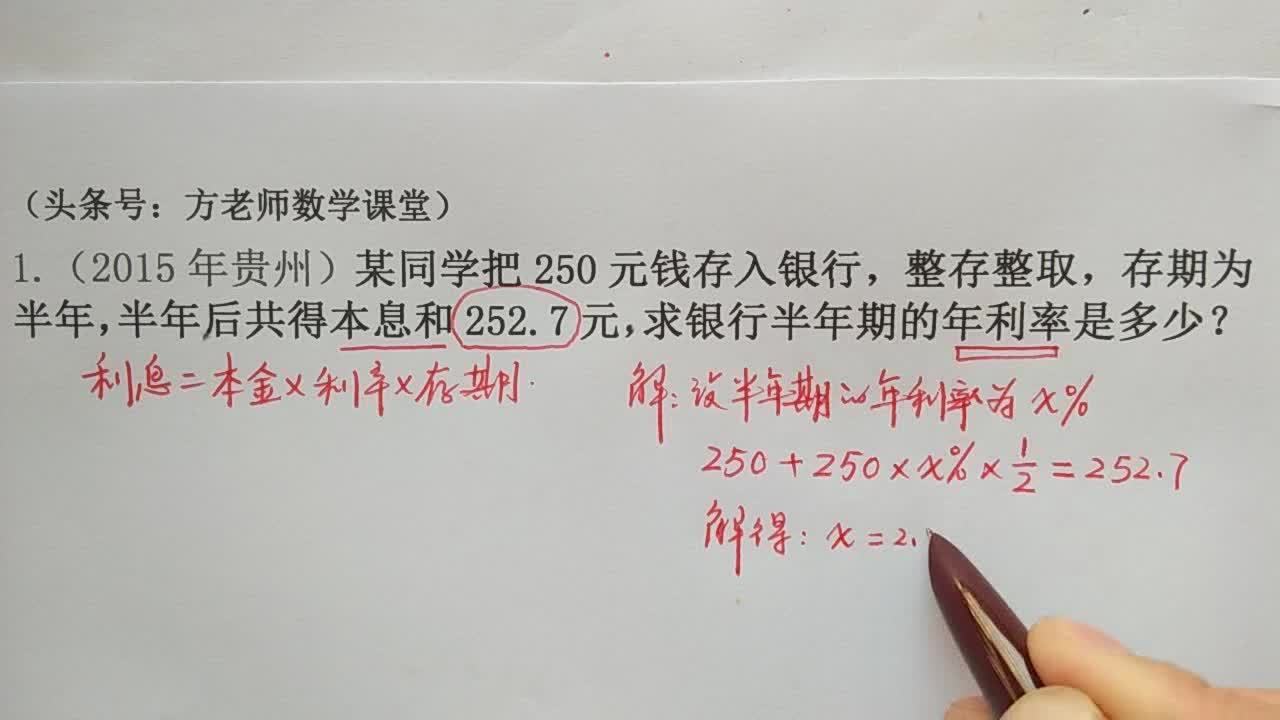 （头条号：方老师数学课堂）
1.（2015 年贵州）某同学把 250 元钱存入银行，整存整取，存期为
半年，半年后共得本息和 252.7 元，求银行半年期的年利率是多少？
利息=本金×利率×存期.
解：设半年期的年利率为 x%
250+250×x%×1/2=252.7
解得：x=2.